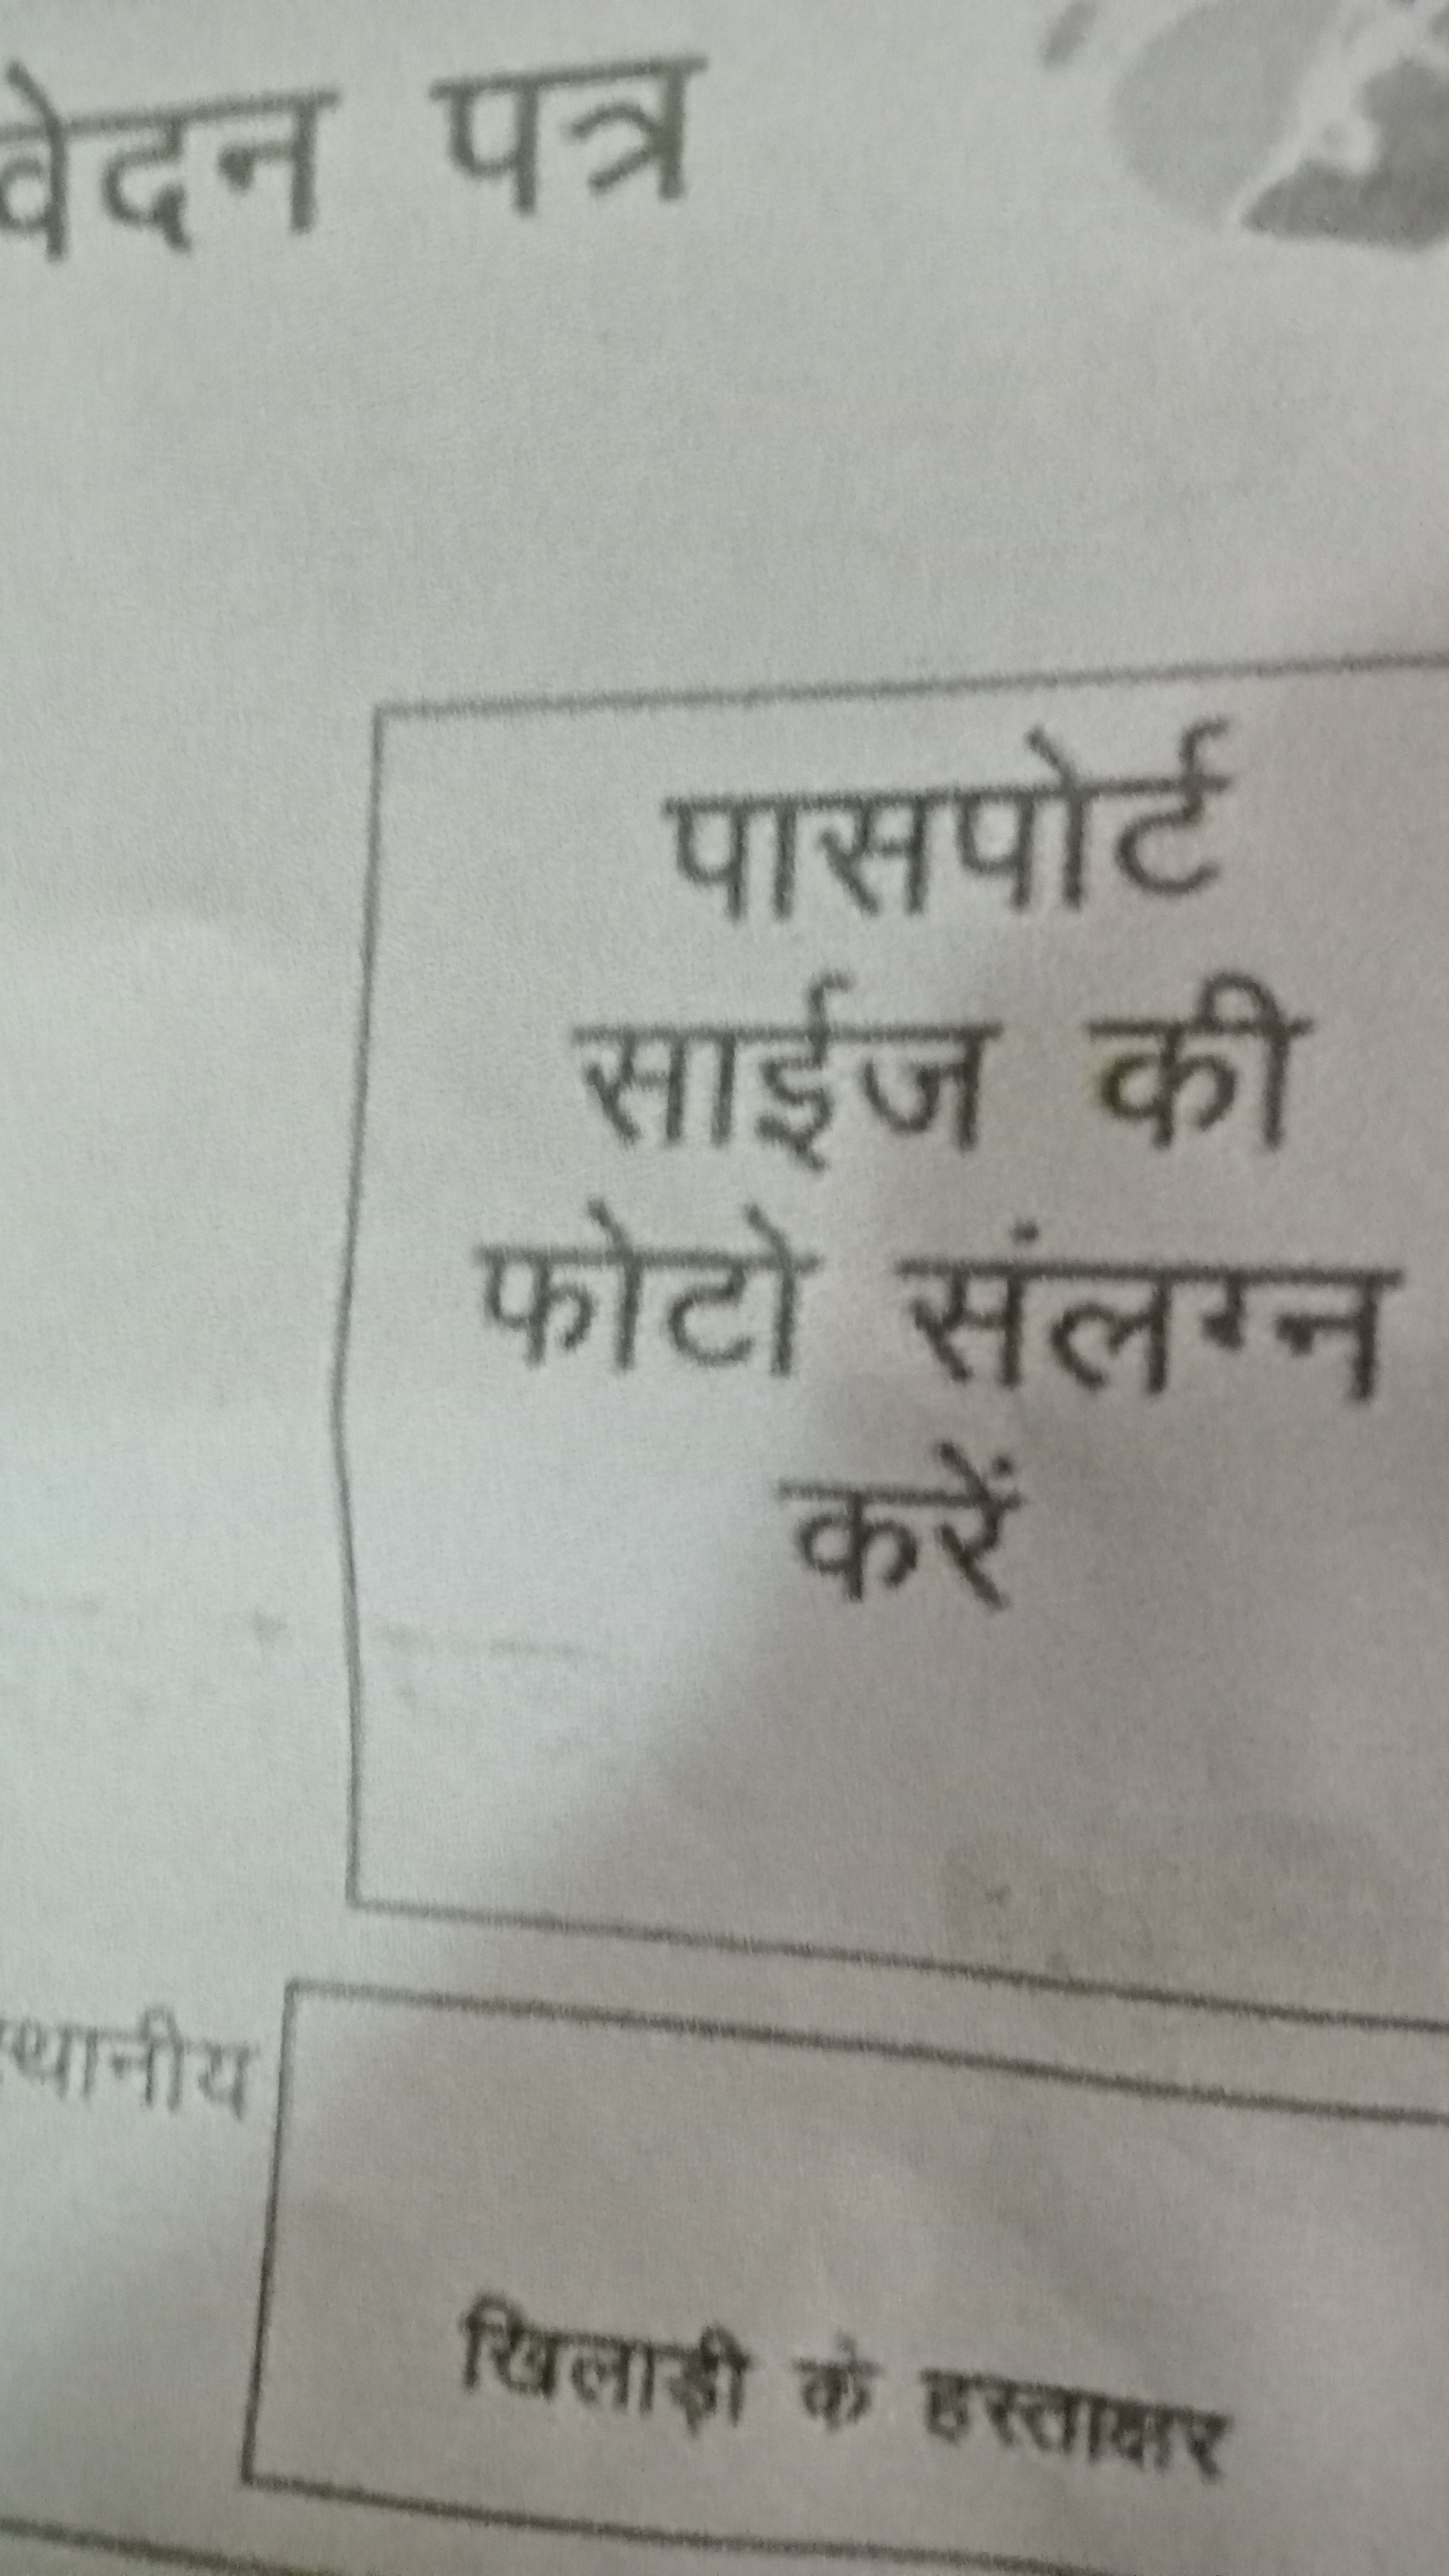 वेदन पत्र
पासपोर्ट
साईज की
फोटो संलग्न
करें
स्थानीय
खिलाड़ी के हस्ताक्षर